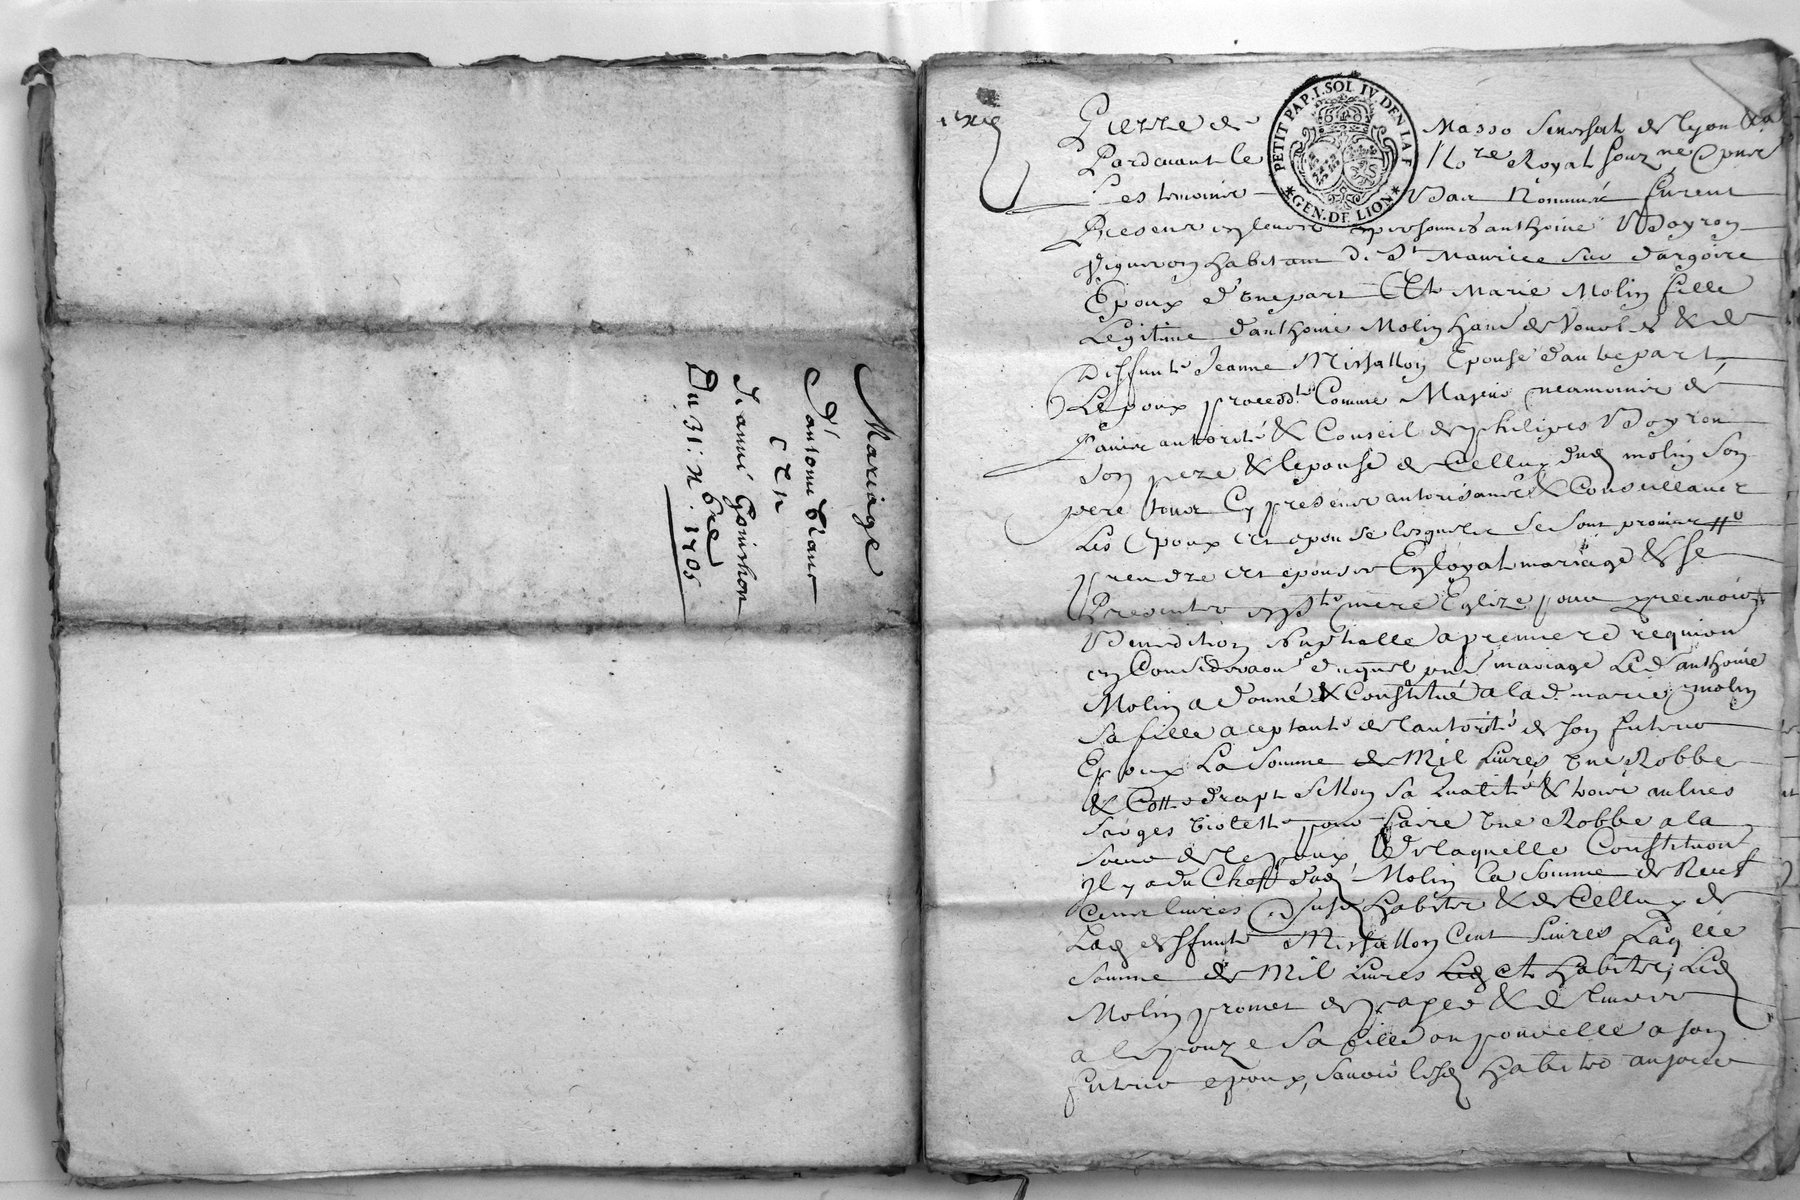 Mariage
D'antoine blanc
Et
Jeanne
Du 31: xbre 1705
PETIT PAP. I. SOL IV. DEN LA F
GEN. DE LION
Pierre de Masso Seneschal de lyon &a
Pardevant le No.re Royal souz.ne &
Les temoins Bas Nommés furent
Presens en leurs personnes anthoine Bayron
Vigneron habitant de St Maurice sur dargoire
Epoux d'une part Et Marie Molin fille
Legitime d'anthoine Molin de & de
Deffunte Jeanne Missallon Epouse d'autre part
Lepoux proced.t Comme Majeur neamoins de
L'avis autorité & Conseil de philipes Bayron
Son pere & lepouse de Celluy dud molin Son
pere tous Cy presens autorisans & Conseillans
Les Epoux et epouse lesquels se sont promis
prendre et epouser En loyal mariage & se
Presenter en ste mere Eglize pour y recevoir
Benediction Nuptialle a premiere requision
en Consideraon duquel mariage Led anthoine
Molin a donné & Constitué a lad marie molin
Sa fille aceptante de l'autorité de son futeur
Epoux La Somme de Mil Livres Une Robbe
& Cotte drapt sellon sa qualité & trois aulnes
sarges violette pour faire Une Robbe a la
soeur de lepoux De laquelle Constitution
Il y a du Cheff dud Molin la Somme de Neuf
Cent livres Lesd habits & de Celluy de
Lad deffunte Missallon Cent Livres Laq.lle
Somme de Mil Livres Led et habits, Led
Molin promet de payer & delivrer
a lepouze sa fille ou pour elle a son
futeur epoux, savoir lesd habits au jour